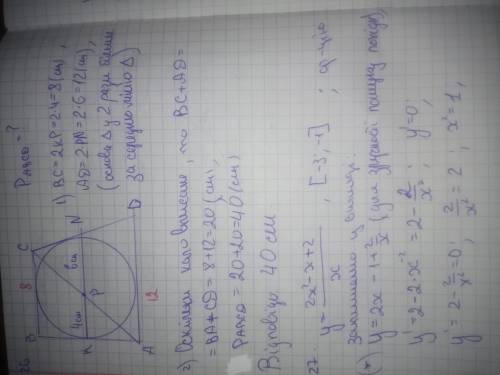 26.
B
C
8
K
4см
P
6см
N
A
12
D
P_ABCD = ?
1) BC = 2KP = 2·4 = 8 (см),
AD = 2PN = 2·6 = 12 (см),
(основа Δ у 2 рази більша
за середню лінію Δ)
2) Оскільки коло вписане, то BC + AD =
= BA + CD = 8 + 12 = 20 (см),
P_ABCD = 20 + 20 = 40 (см)
Відповідь. 40 см
27. y = (2x² - x + 2)/x , [-3; -1] ; ф-цію
запишемо у вигляді:
(*) y = 2x - 1 + 2/x (для зручності пошуку похідн.),
y' = 2 - 2·x⁻² = 2 - 2/x² ; y' = 0;
y' = 2 - 2/x² = 0; 2/x² = 2 ; x² = 1,